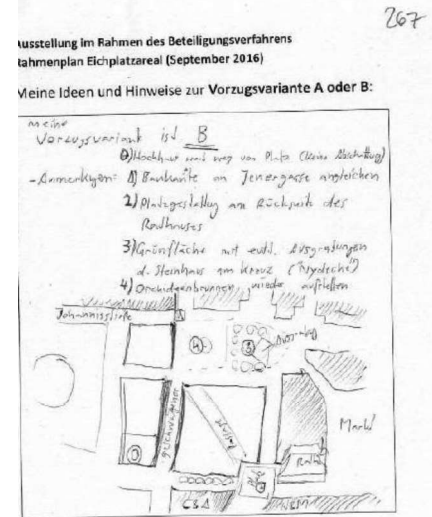 267
Ausstellung im Rahmen des Beteiligungsverfahrens
Rahmenplan Eichplatzareal (September 2016)
Meine Ideen und Hinweise zur Vorzugsvariante A oder B:
meine
Vorzugsvariante ist B
0) Hochhaus weg von Platz
- Anmerkungen: 1) Baukante an Jenergasse angleichen
2) Platzgestaltung an Rückseite des
Rathauses
3) Grünfläche mit evtl. Ausgrabungen
d. Steinhaus am Kreuz
4) Orchideenbrunnen wieder aufstellen
Johannisstraße
1
4
3
Markt
Rath.
0
2
C&A